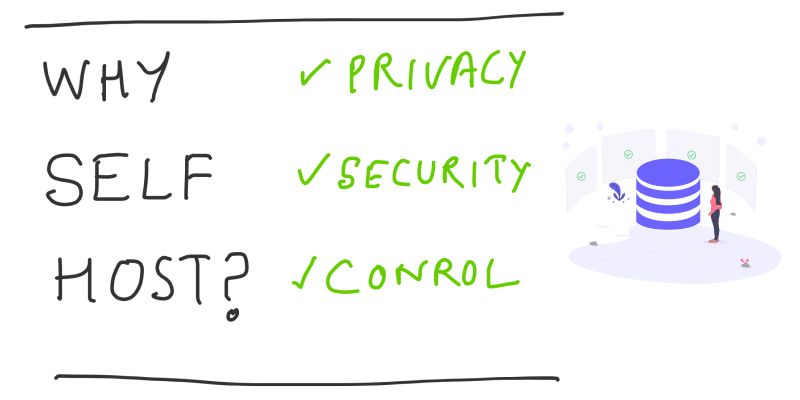 WHY
SELF
HOST?
✓ PRIVACY
✓ SECURITY
✓ CONROL